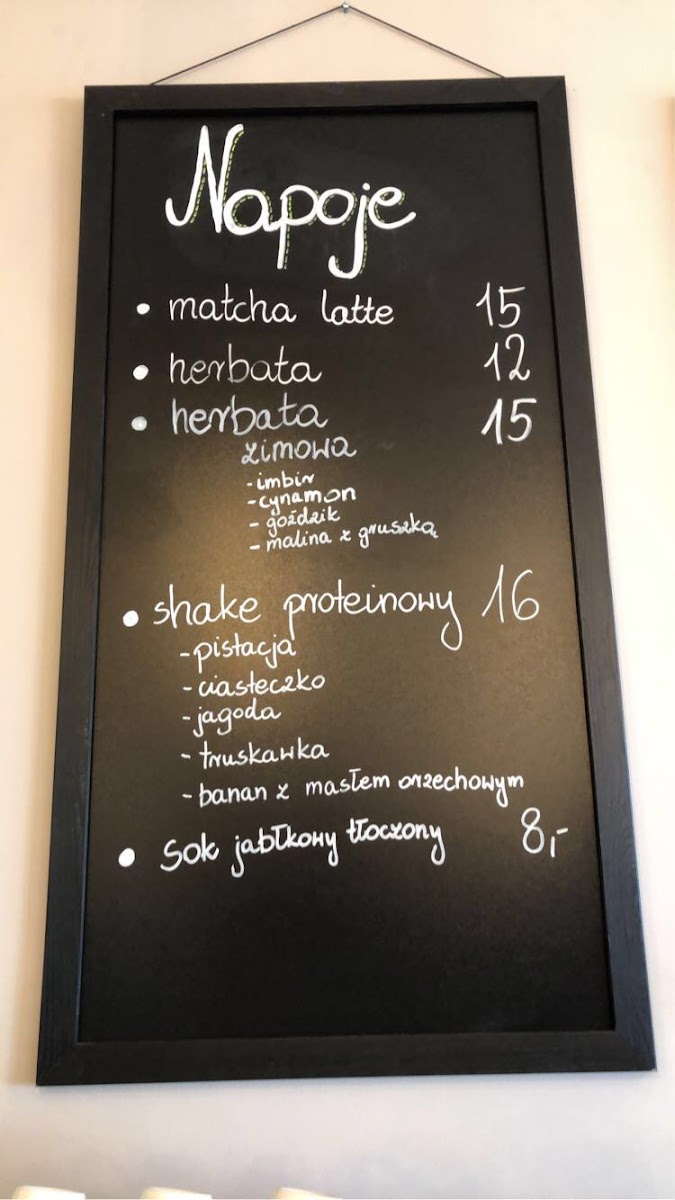 Napoje
• matcha latte 15
• herbata 12
• herbata 15
zimowa
- imbir
- cynamon
- goździk
- malina z gruszką
• shake proteinowy 16
- pistacja
- ciasteczko
- jagoda
- truskawka
- banan z masłem orzechowym
• sok jabłkowy tłoczony 8,-